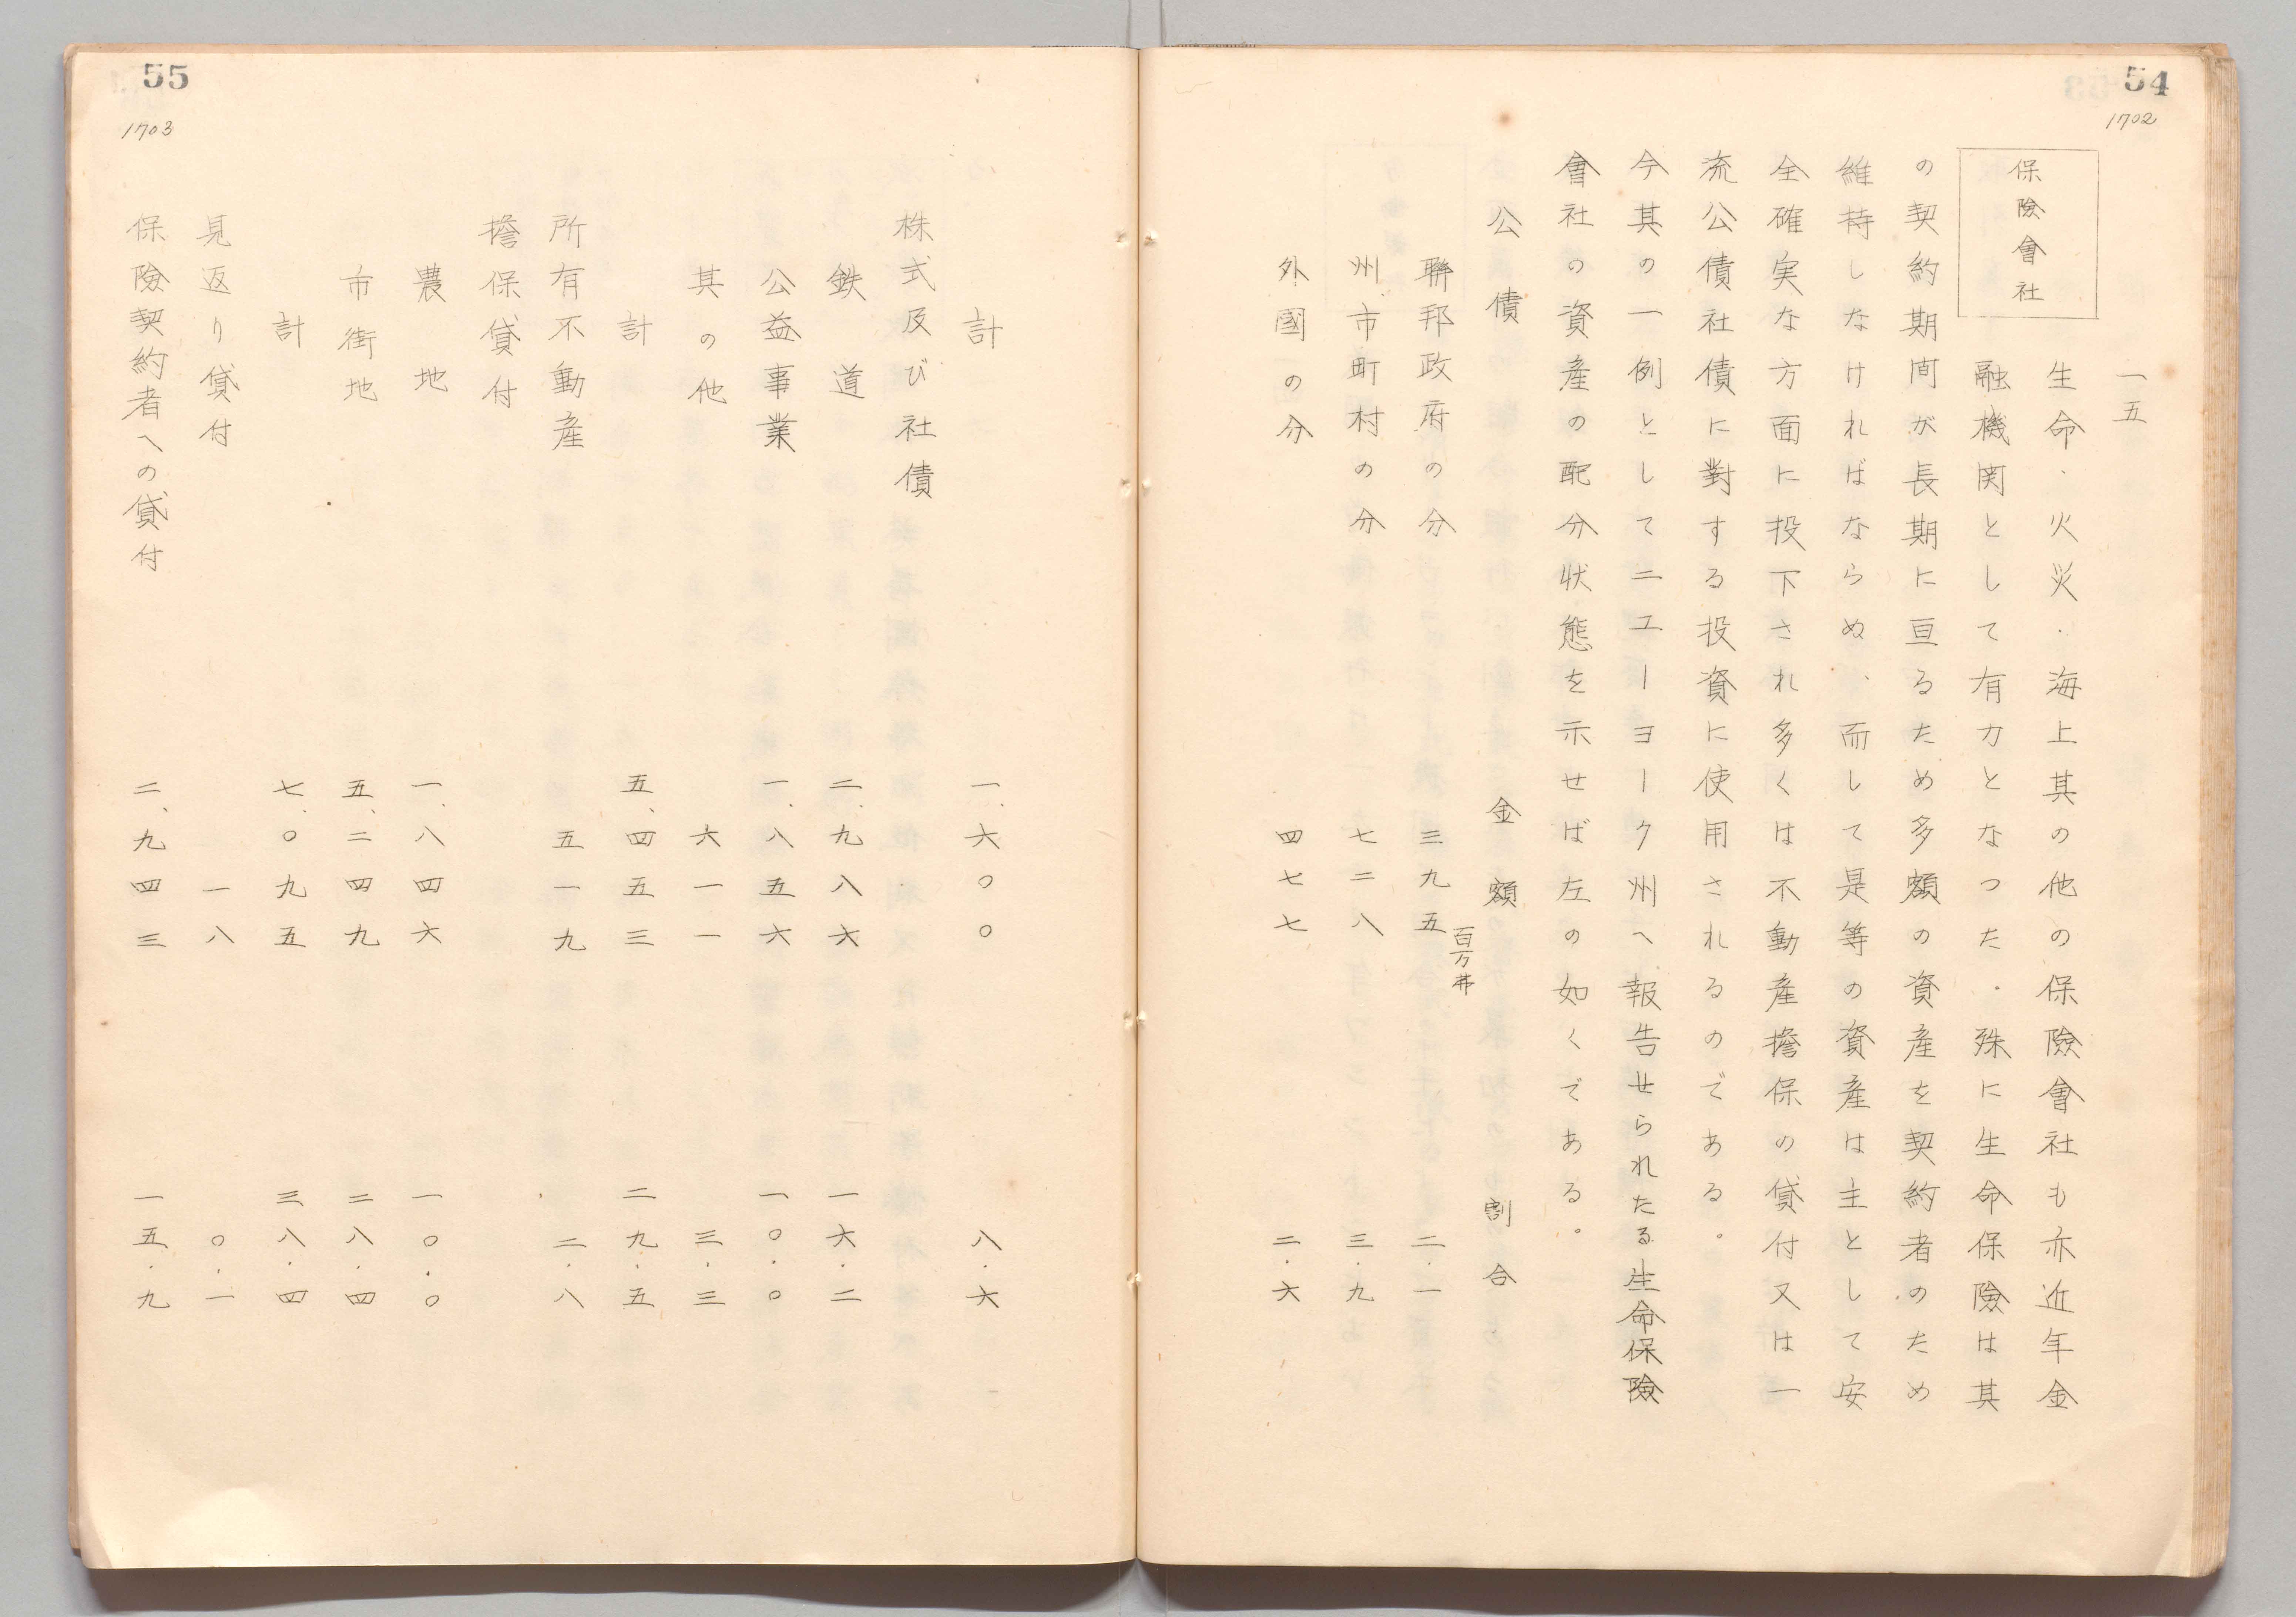 54
1702
一五
保險會社
生命・火災・海上其の他の保險會社も亦近年金
融機関として有力となつた・殊に生命保險は其
の契約期间が長期に亘るため多額の資産を契約者のため
維持しなければならぬ、而して是等の資産は主として安
全確実な方面に投下され多くは不動産擔保の貸付又は一
流公債社債に對する投資に使用されるのである。
今其の一例としてニエーヨーク州へ報告せられたる生命保險
會社の資産の配分状態を示せば左の如くである。
公債 金額 割合
聯邦政府の分 三九五百万弗 二・一
州、市町村の分 七二八 三・九
外國の分 四七七 二・六
55
1703
計 一、六〇〇 八・六
株式及び社債
鉄道 二、九八六 一六・二
公益事業 一、八五六 一〇・〇
其の他 六一一 三・三
計 五、四五三 二九・五
所有不動産 五一九 二・八
擔保貸付
農地 一、八四六 一〇・〇
市街地 五、二四九 二八・四
計 七、〇九五 三八・四
見返り貸付 一八 〇・一
保險契約者への貸付 二、九四三 一五・九